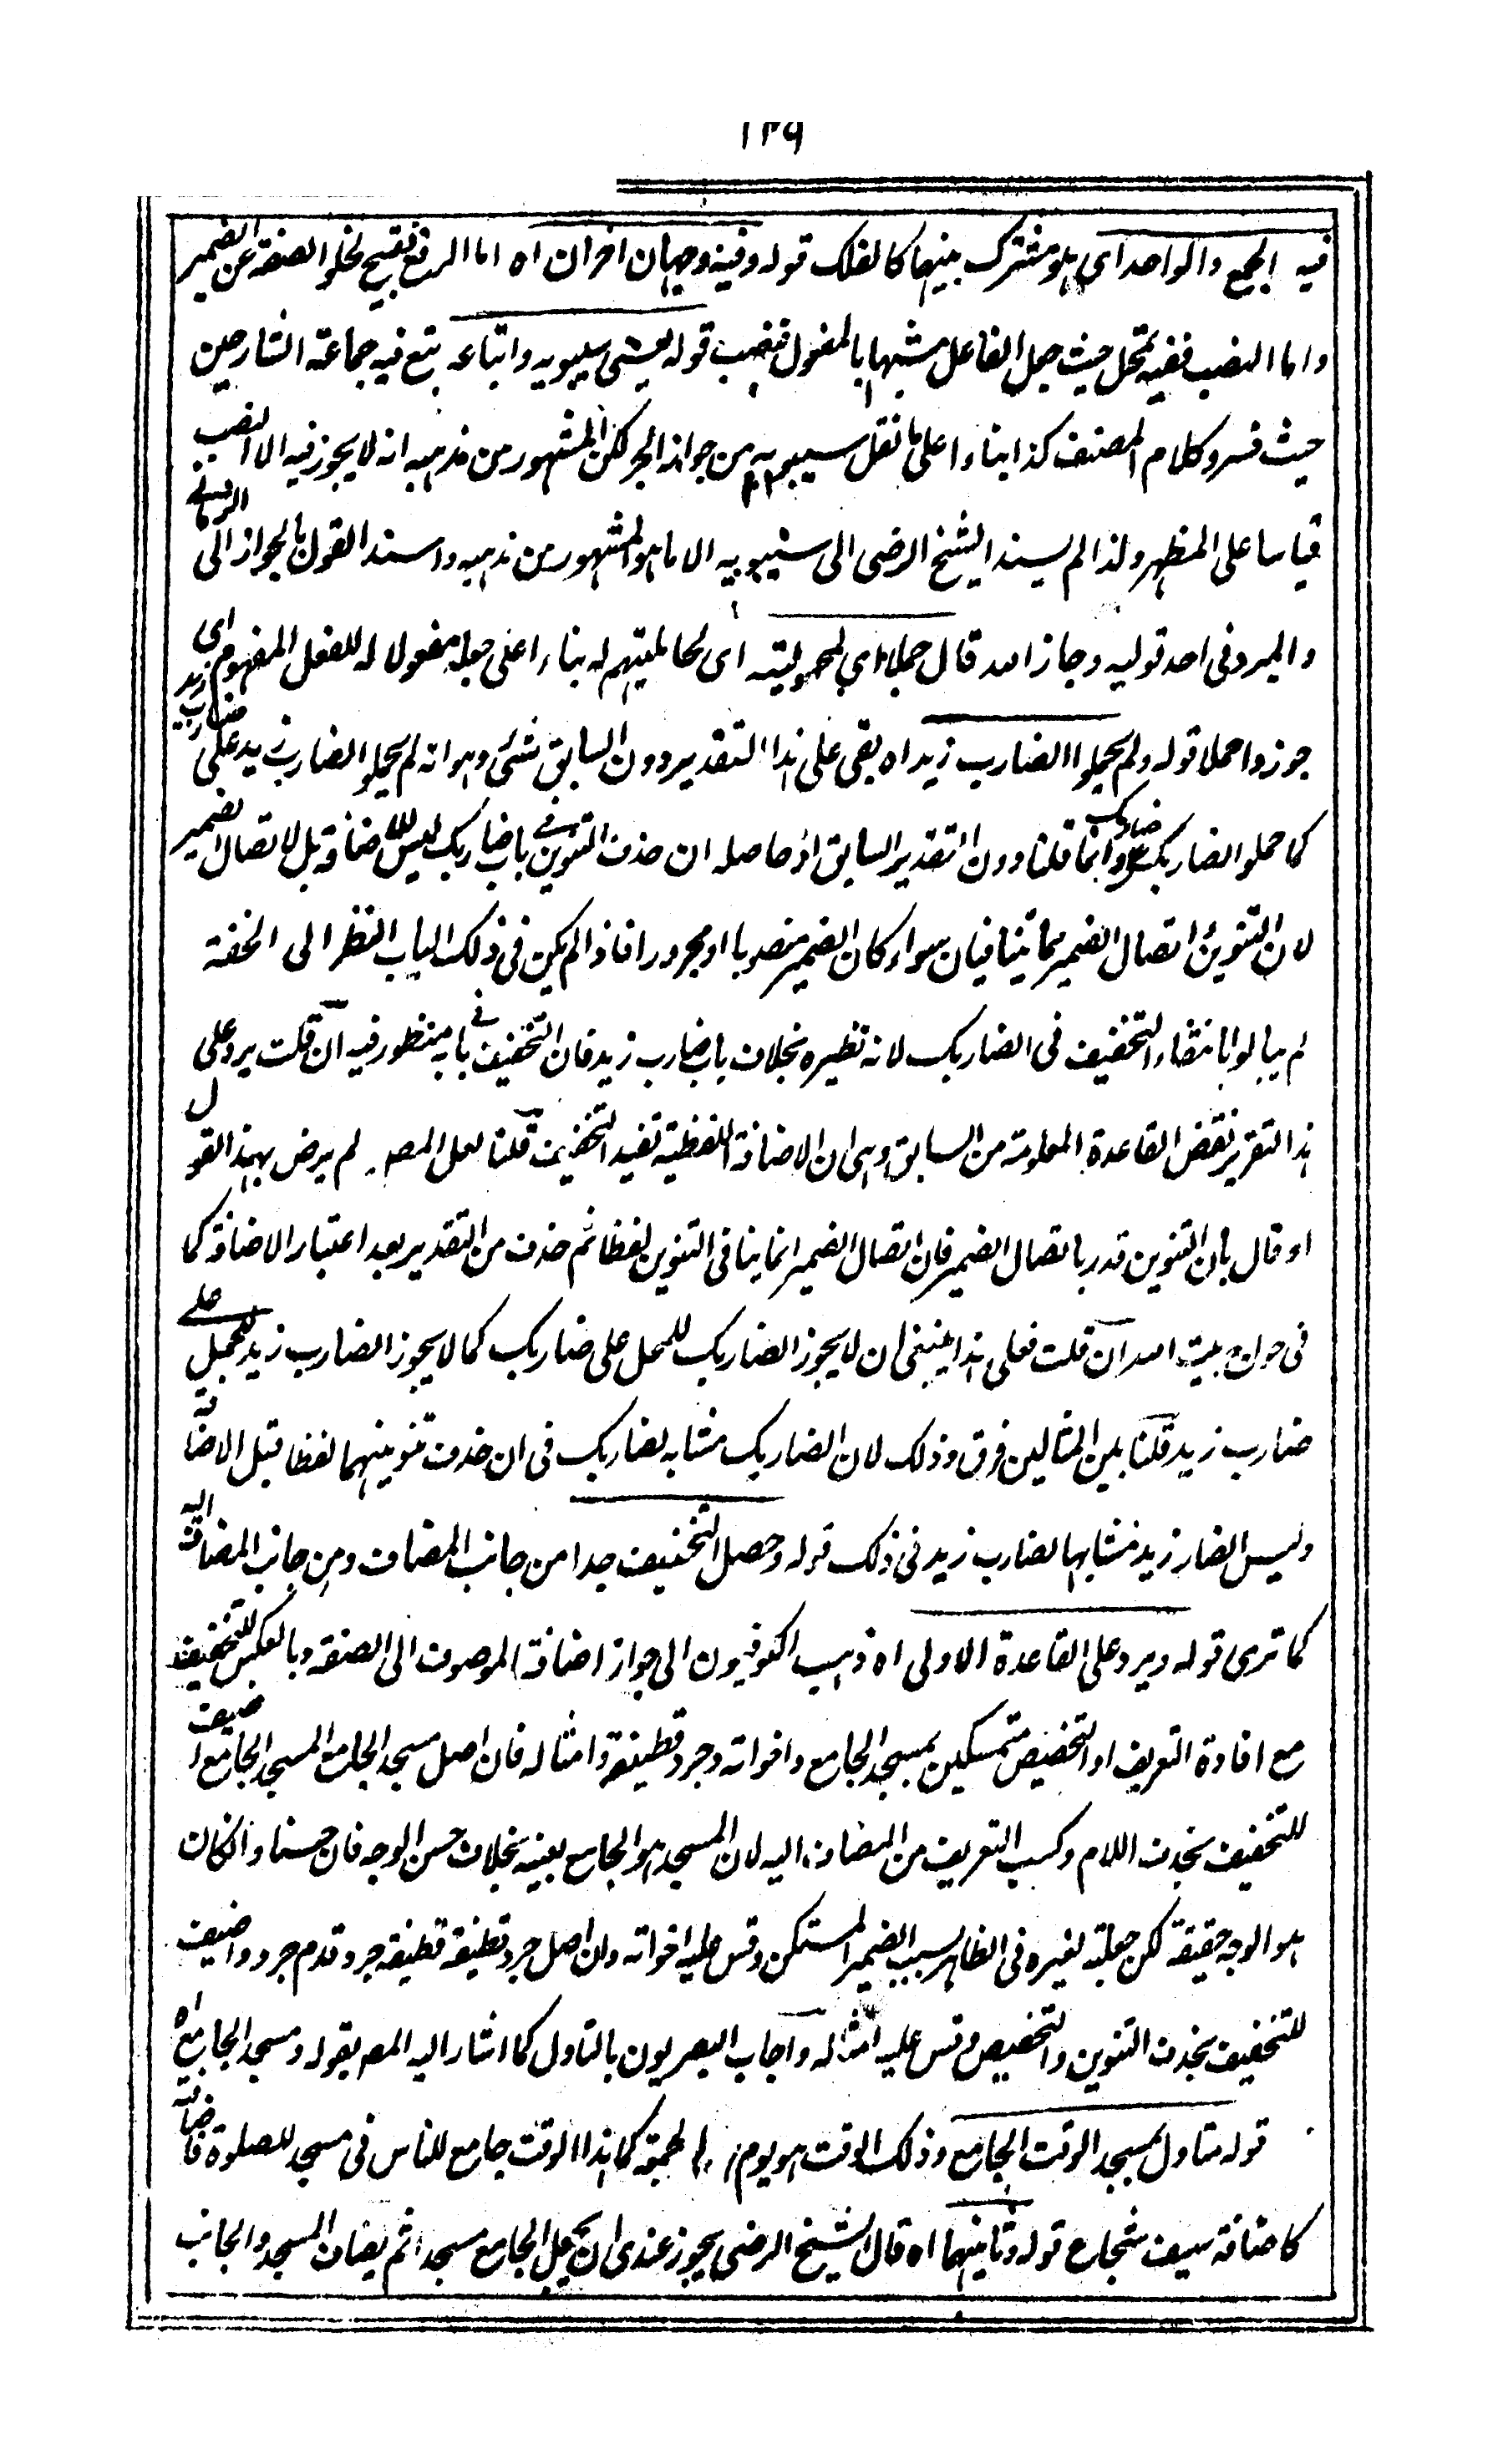 ١٣٩
فيه الجمع والواحد اى هلو مشترك بينهما كالفلك قوله وفيه وجهان اخران اه اما الرفع فقبيح لخلو الصفة عن الضمير
واما النصب ففيه تمحل حيث جعل الفاعل مشبها بالمفعول فنصب قوله يعنى سيبويه واتباعه تبع فيه جماعة الشارحين
حيث فسروا كلام المصنف كذا بناء على ما نقل سيبويه من جواز الجر لكن المشهور من مذهبه انه لا يجوز فيه الا النصب
قياسا على المظهر ولذا لم يسند الشيخ الرضى الى سيبويه الا ما هو المشهور من مذهبه واسند القول بالجواز الى الرمانى
والمبرد فى احد قوليه وجاز الله قال حملا اي لمحموليته اى لحامليتهم له بناء على جعله مفعولا له للفعل المفهوم اى
جوزوا حملا قوله ولم يحملوا الضارب زيد اه بقى على هذا التقدير دون السابق شئ وهو انه لم يحملوا الضارب زيد على ضارب زيد
كما حملوا الضاربك على ضاربك وانما قلنا دون التقدير السابق اذ حاصله ان حذف التنوين فى باب ضاربك ليس للاضافة بل لاتصال الضمير
لان التنوين واتصال الضمير مما يتنافيان سواء كان الضمير منصوبا او مجرورا فاذا لم يكن فى ذلك الباب النظر الى الخفة
لم يبالوا بانتفاء التخفيف فى الضاربك لانه نظيره بخلاف باب ضارب زيد فان التخفيف فى بابه منظور فيه ان قلت يرد على
هذا التقرير نقض القاعدة المعلومة من السابق وهى ان الاضافة اللفظية تفيد التخفيف قلنا لعل المصـ لم يرض بهذا القول
او قال بان التنوين قدر باتصال الضمير فان اتصال الضمير انما ينافى التنوين لفظا ثم حذف من التقدير بعد اعتبار الاضافة كما
فى حواج بيت الله ان قلت فعلى هذا ينبغى ان لا يجوز الضاربك للحمل على ضاربك كما لا يجوز الضارب زيد للحمل على
ضارب زيد قلنا بين المثالين فرق وذلك لان الضاربك مشابه لضاربك فى ان حذفت تنوينهما لفظا قبل الاضافة
وليس الضار زيد مشابها لضارب زيد فى ذلك قوله وحصل التخفيف جدا من جانب المضاف ومن جانب المضاف اليه
كما ترى قوله ويرد على القاعدة الاولى اه ذهب الكوفيون الى جواز اضافة الموصوف الى الصفة وبالعكس للتخفيف
مع افادة التعريف او التخصيص متمسكين بمسجد الجامع واخواته وجرد قطيفة وامثاله فان اصل مسجد الجامع المسجد الجامع اضيف
للتخفيف بحذف اللام وكسب التعريف من المضاف اليه لان المسجد هو الجامع بعينه بخلاف حسن الوجه فان حسنا وان كان
هو الوجه حقيقة لكن جعلته لغيره فى الظاهر بسبب الضمير المستكن وقس عليه اخواته وان اصل جرد قطيفة قطيفة جرد قدم جرد واضيف
للتخفيف بحذف التنوين والتخصيص وقس عليه امثاله واجاب البصريون بالتاول كما اشار اليه المصـ بقوله ومسجد الجامع اه
قوله متاول بمسجد الوقت الجامع وذلك الوقت هو يوم الجمعة كما هذا الوقت جامع للناس فى مسجد للصلوة فاضافته
كاضافة سيف شجاع قوله وثانيهما اه قال الشيخ الرضى يجوز عندى ان يجعل الجامع مسجدا ثم يضاف المسجد والجانب